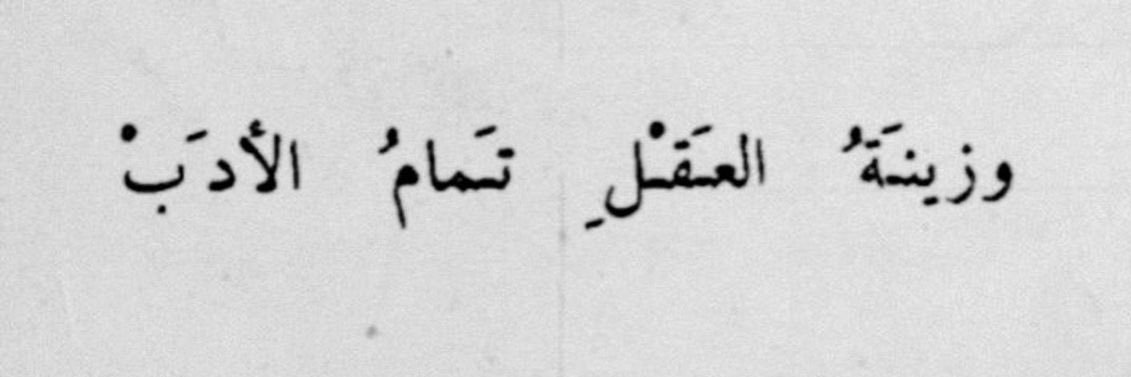 وزينَةُ العَقْلِ تَمامُ الأَدَبْ